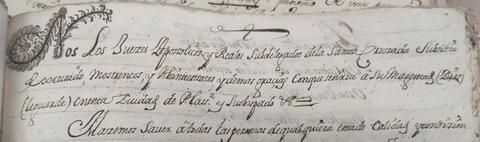 Nos Los Buezes Appostolicos, y Reales Subdelegados dela Santa Cruzada Subsidio
Excusado, Mostrencos, y Abintestatos, y demas gracias Conque se sirve â Su Magestad (Dios
leguarde) en esta Ziudad de Plas.ª y Su obispado &ª
Hazemos Saver â todas las personas de qualquiera estado Calidad, y condizion